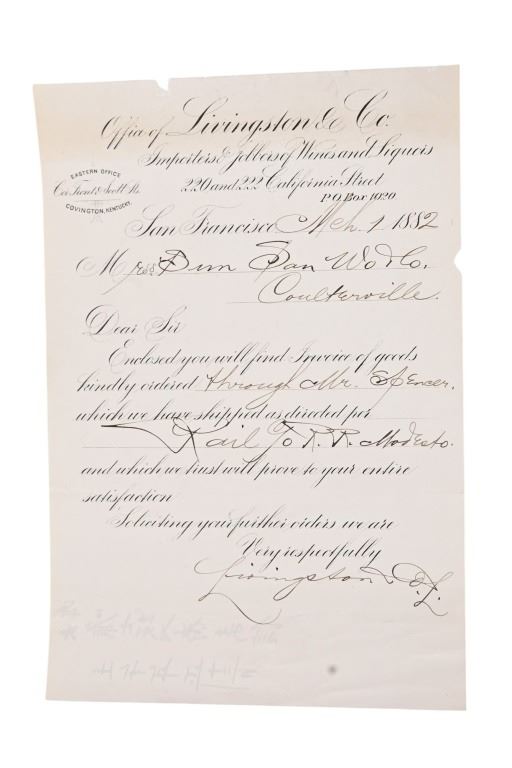 Office of Livingston & Co.
Importers & Jobbers of Wines and Liquors
220 and 222 California Street
P O Box 1920
EASTERN OFFICE
Cor. Front & Scott Sts.
COVINGTON, KENTUCKY.
San Francisco Mch 1 1882
Messrs Sun Wo & Co.
Coulterville.
Dear Sir
Enclosed you will find Invoice of goods
kindly ordered through Mr. Spencer,
which we have shipped as directed per
Rail to R. R. Modesto.
and which we trust will prove to your entire
satisfaction
Soliciting your further orders we are
Very respectfully
Livingston & Co.